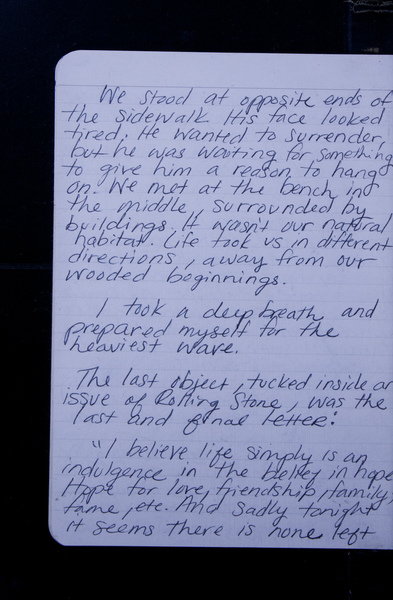 We stood at opposite ends of
the sidewalk. His face looked
tired. He wanted to surrender,
but he was waiting for something
to give him a reason to hang
on. We met at the bench in
the middle, surrounded by
buildings. It wasn't our natural
habitat. Life took us in different
directions, away from our
wooded beginnings.
I took a deep breath and
prepared myself for the
heaviest wave.
The last object, tucked inside an
issue of Rolling Stone, was the
last and final letter:
"I believe life simply is an
indulgence in the belief in hope
Hope for love, friendship, family,
fame, etc. And sadly tonight
it seems there is none left